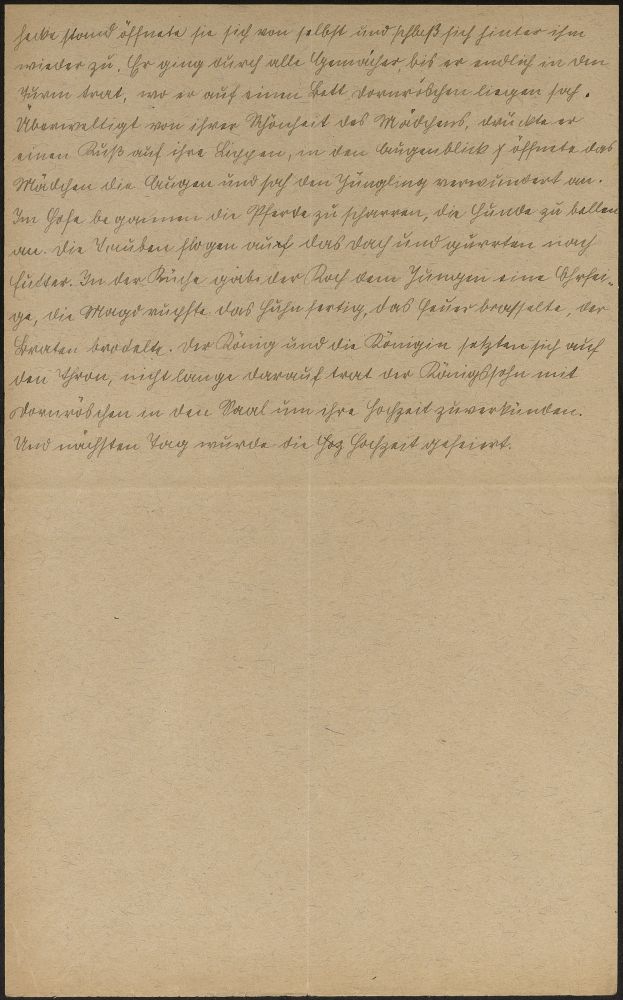 hecke stand öffnete sie sich von selbst und schloß sich hinter ihm
wieder zu. Er ging durch alle Gemächer, bis er endlich in den
Turm trat, wo er auf einem Bett Dornröschen liegen sah.
Überweltigt von ihrer Schönheit des Mädchens, drückte er
einen Kuß auf ihre Lippen, in den Augenblick öffnete das
Mädchen die Augen und sah den Jüngling verwundert an.
Im Hofe begannen die Pferde zu scharren, die Hunde zu bellen
an. Die Tauben flogen auf das Dach und gurrten nach
Futter. In der Küche gab der Koch dem Jungen eine Ohrfei-
ge, die Magd rupfte das Huhn fertig, das Feuer brasselte, der
Braten brodelte. Der König und die Königin setzten sich auf
den Thron, nicht lange darauf trat der Königssohn mit
Dornröschen in den Saal um ihre Hochzeit zuverkünden.
Und nächsten Tag wurde die Hochzeit gefeiert.